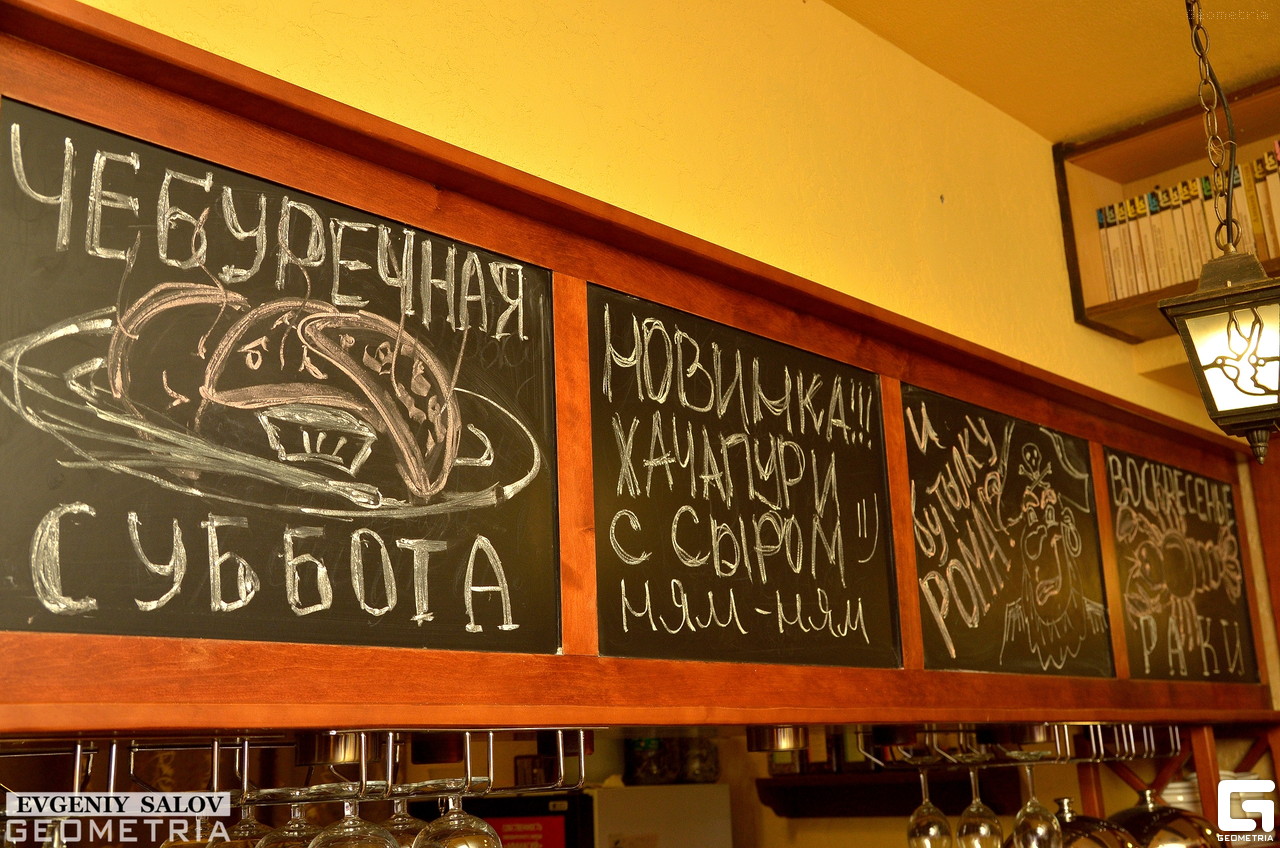 ЧЕБУРЕЧНАЯ
СУББОТА
НОВИНКА!!!
ХАЧАПУРИ
С СЫРОМ =)
НЯМ-НЯМ
И
бутылку
РОМА!
ВОСКРЕСЕНЬЕ
РАКИ
EVGENIY SALOV
GEOMETRIA
GEOMETRIA
Geometria